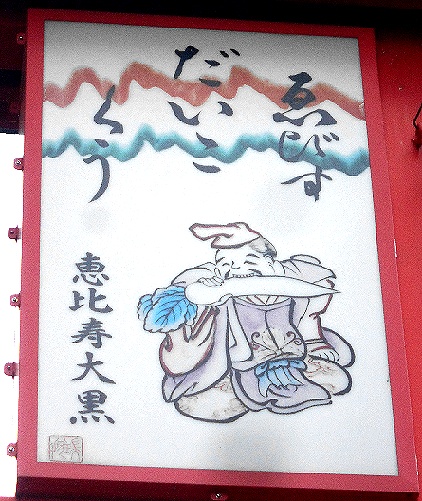 ゑびす
だいこ
くう
恵比寿大黒